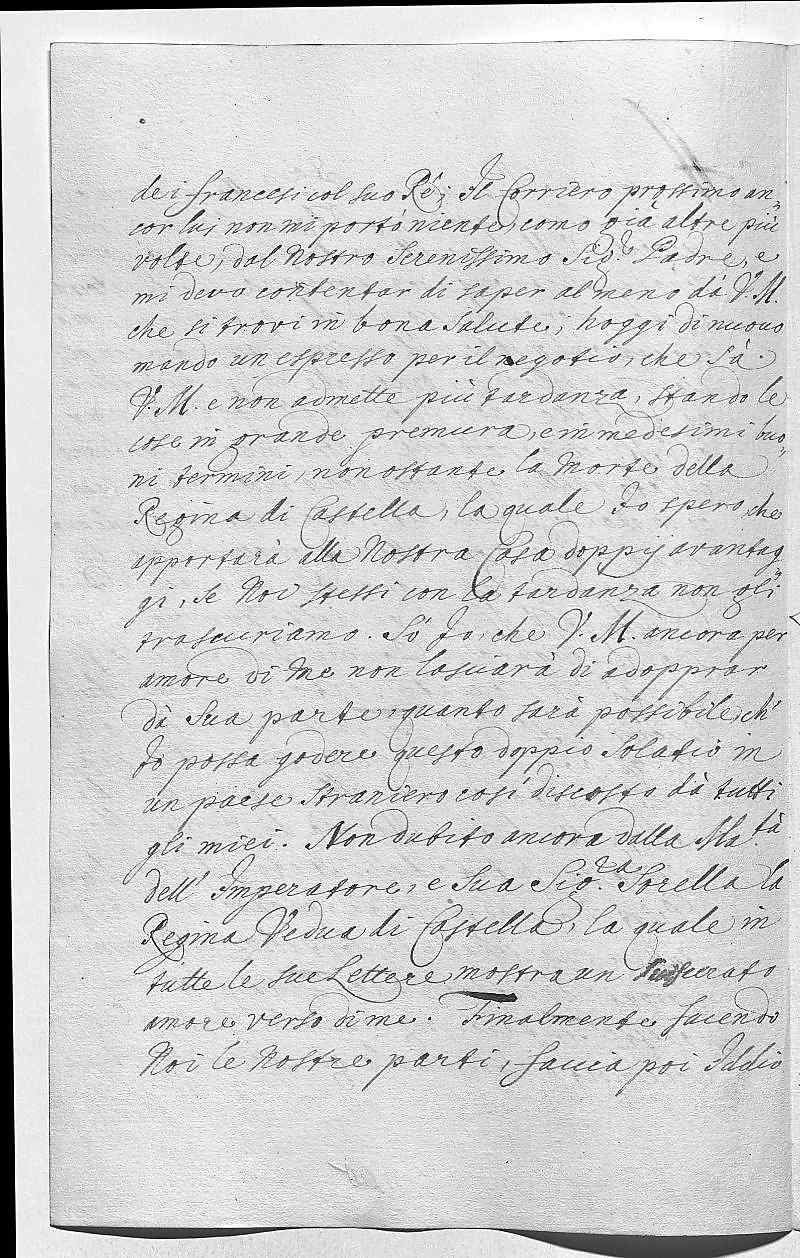 dei francesi col suo Ré; Il Corriero prossimo an=
cor lui non mi portó niente, como giá altre più
volte, dal Nostro Serenissimo Sig.r Padre, e
mi devo contentar di saper al meno dà V. M.
che si trovi in bona salute; hoggi di nuovo
mando un espresso per il negotio, che Sà
V. M. e non admette più tardanza, stando le
cose in grande premura, e in medesimi buo=
ni termini, non ostante la Morte della
Regina di Castella, la quale Io spero, che
apportarà alla Nostra Casa doppij avantag=
gi, se Noi stessi con la tardanza non gli
trascuriamo. Só Io, che V. M. ancora per
amore di Me non lasciarà di adopprar
dà Sua parte, quanto sarà possibile, ch'
Io possa godere questo doppio Solatio in
un paese straniero cosí discosto dà tutti
gli miei. Non dubito ancora dalla Ma.tà
dell' Imperatore, e Sua Sig.ra Sorella la
Regina Vedua di Castella, la quale in
tutte le sue Lettere mostra un suiscerato
amore verso di me. Finalmente facendo
Noi le Nostre parti, faccia poi Iddio